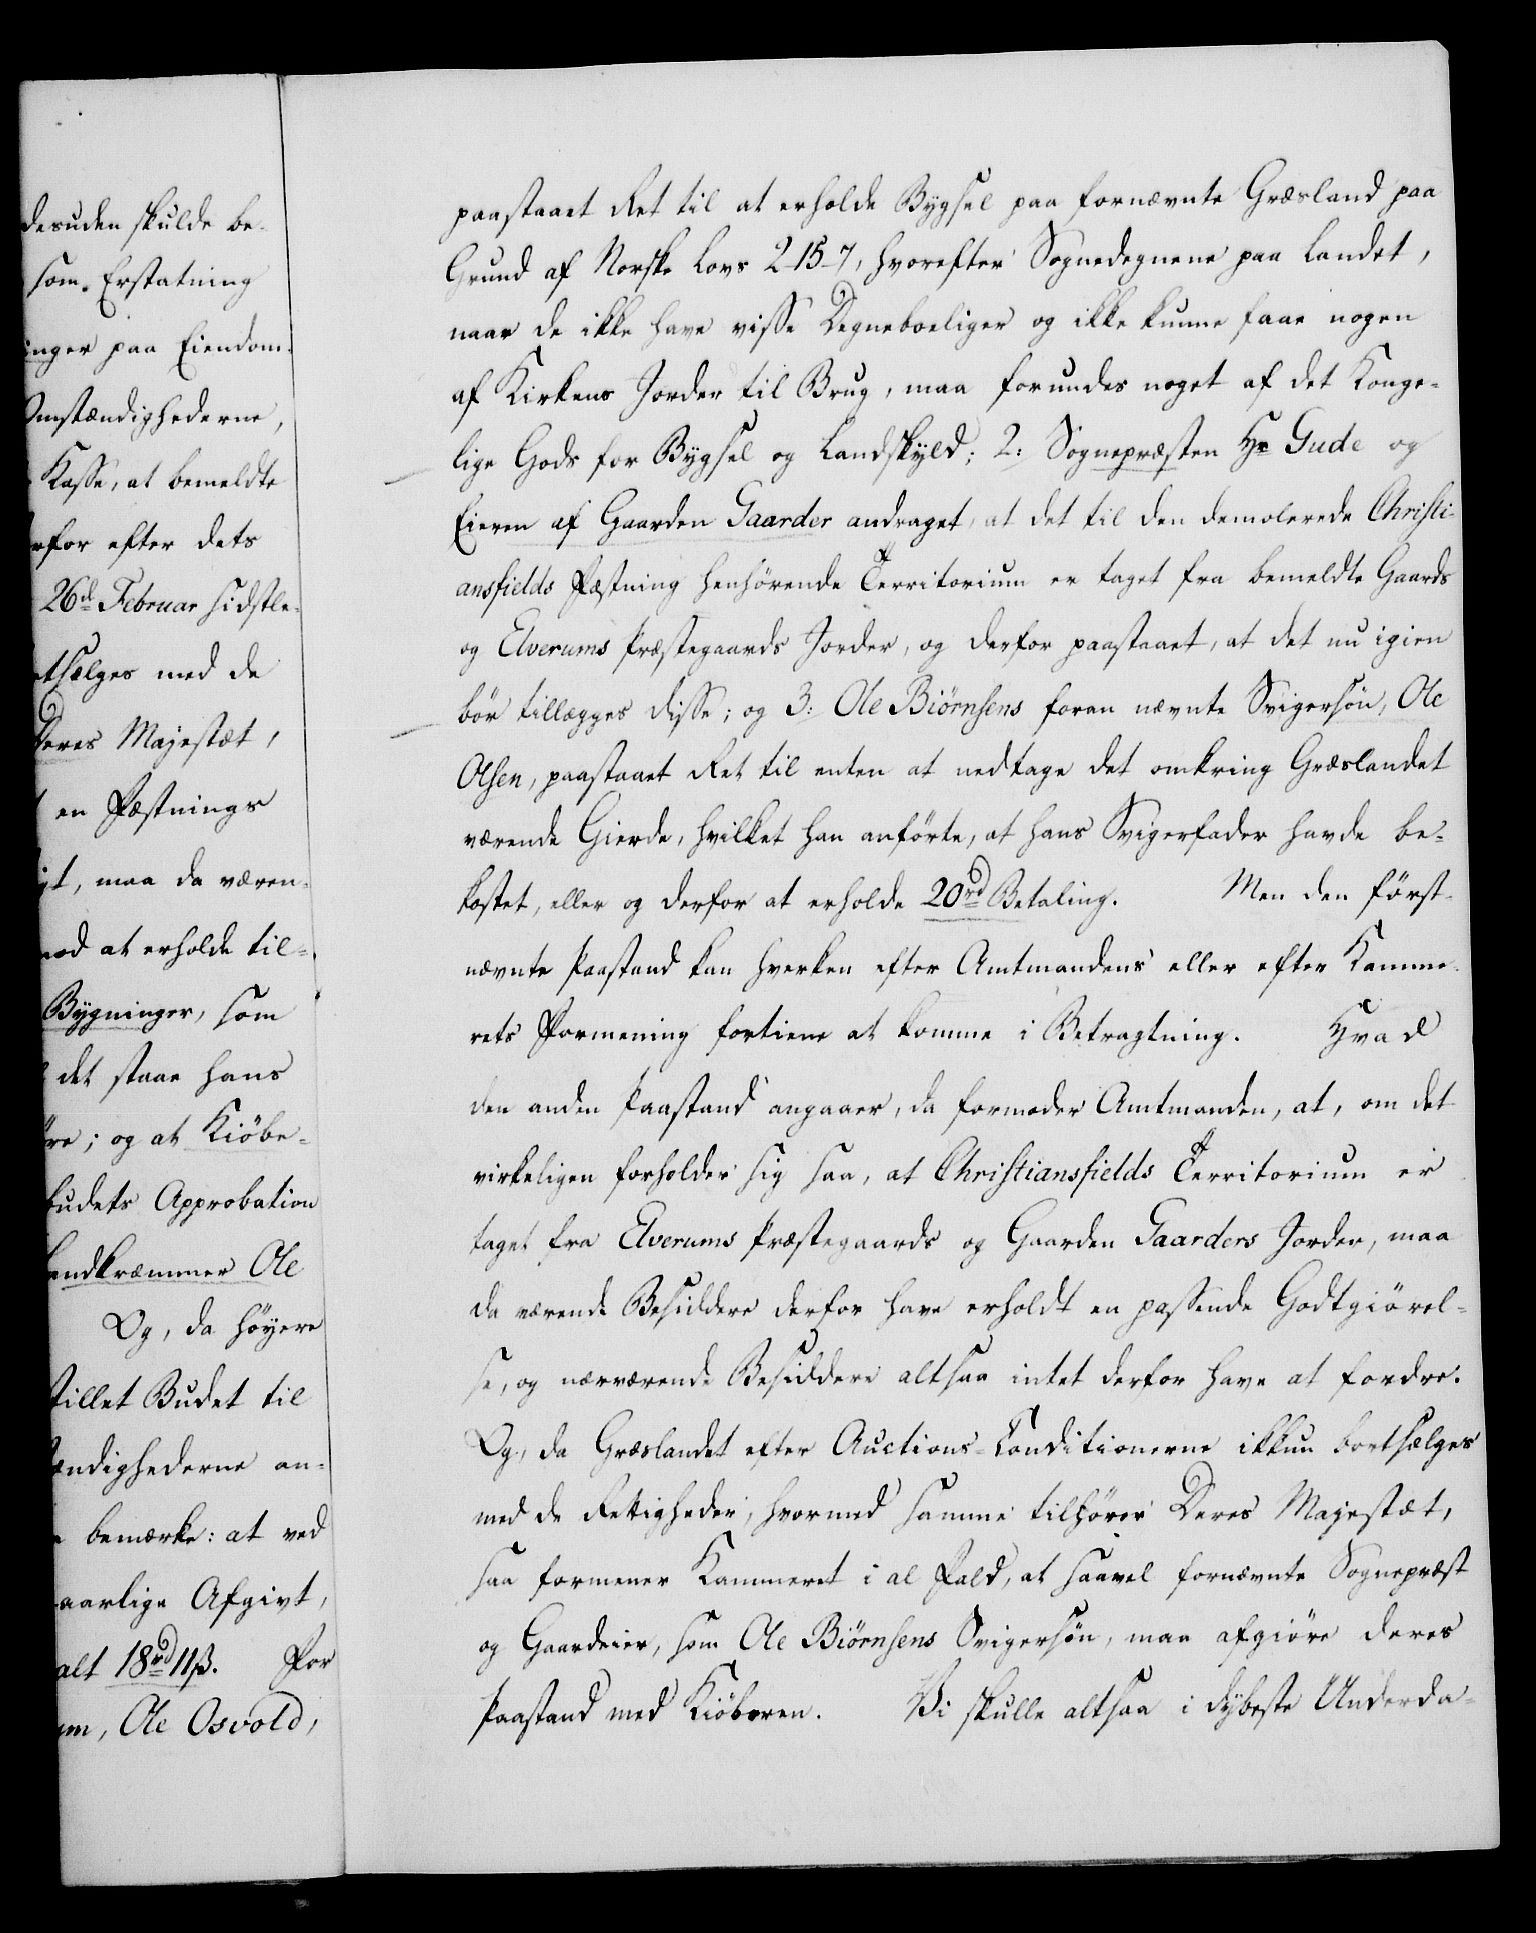 desuden skulde be-
som Erstatning
inger paa Eiendom-
Omstændighederne,
Kasse, at bemeldte
rfor efter dets
26d Februar sidstle-
tsælges med de
Deres Majestæt,
en Fæstnings
t, maa da væren-
mod at erholde til-
Bygninger, som
det staae hans
re; og at Kiöbe-
budets Approbation
andkræmmer Ole
Og, da höyere
stillet Budet til
ændighederne an-
bemærke: at ved
aarlige Afgivt,
alt 18rd 11ß. For
um, Ole Osvold,
paastaaet Ret til at erholde Bygsel paa fornævnte Græsland paa
Grund af Norske Lovs 2-15-7, hvorefter Sognedegnene paa Landet,
naar de ikke have visse Degneboeliger og ikke kunne faae nogen
af Kirkens Jorder til Brug, maa forundes noget af det Konge-
lige Gods for Bygsel og Landskyld; 2: Sognepræsten Hr Gude og
Eieren af Gaarden Gaarder andraget, at det til den demolerede Christi-
ansfields Fæstning henhörende Territorium er taget fra bemeldte Gaards
og Elverums Præstegaards Jorder, og derfor paastaaet, at det nu igien
bör tillægges disse; og 3: Ole Biörnsens foran nævnte Svigersön, Ole
Olsen, paastaaet Ret til enten at nedtage det omkring Græslandet
værende Gierde, hvilket han anförte, at hans Svigerfader havde be-
kostet, eller og derfor at erholde 20rd Betaling. Men den först-
nævnte Paastand kan hverken efter Amtmandens eller efter Kamme-
rets Formening fortiene at komme i Betragtning. Hvad
den anden Paastand angaaer, da formoder Amtmanden, at, om det
virkeligen forholder sig saa, at Christiansfields Territorium er
taget fra Elverums Præstegaards og Gaarden Gaarders Jorder, maa
da værende Besiddere derfor have erholdt en passende Godtgiörel-
se, og nærværende Besiddere altsaa intet derfor have at fordre.
Og, da Græslandet efter Auctions-Conditionerne ikkun bortsælges
med de Rettigheder, hvormed samme tilhörer Deres Majestæt,
saa formener Kammeret i al Fald, at saavel fornævnte Sognepræst
og Gaardeier, som Ole Biörnsens Svigersön, maa afgiöre deres
Paastand med Kiöberen. Vi skulle altsaa i dybeste Underda-